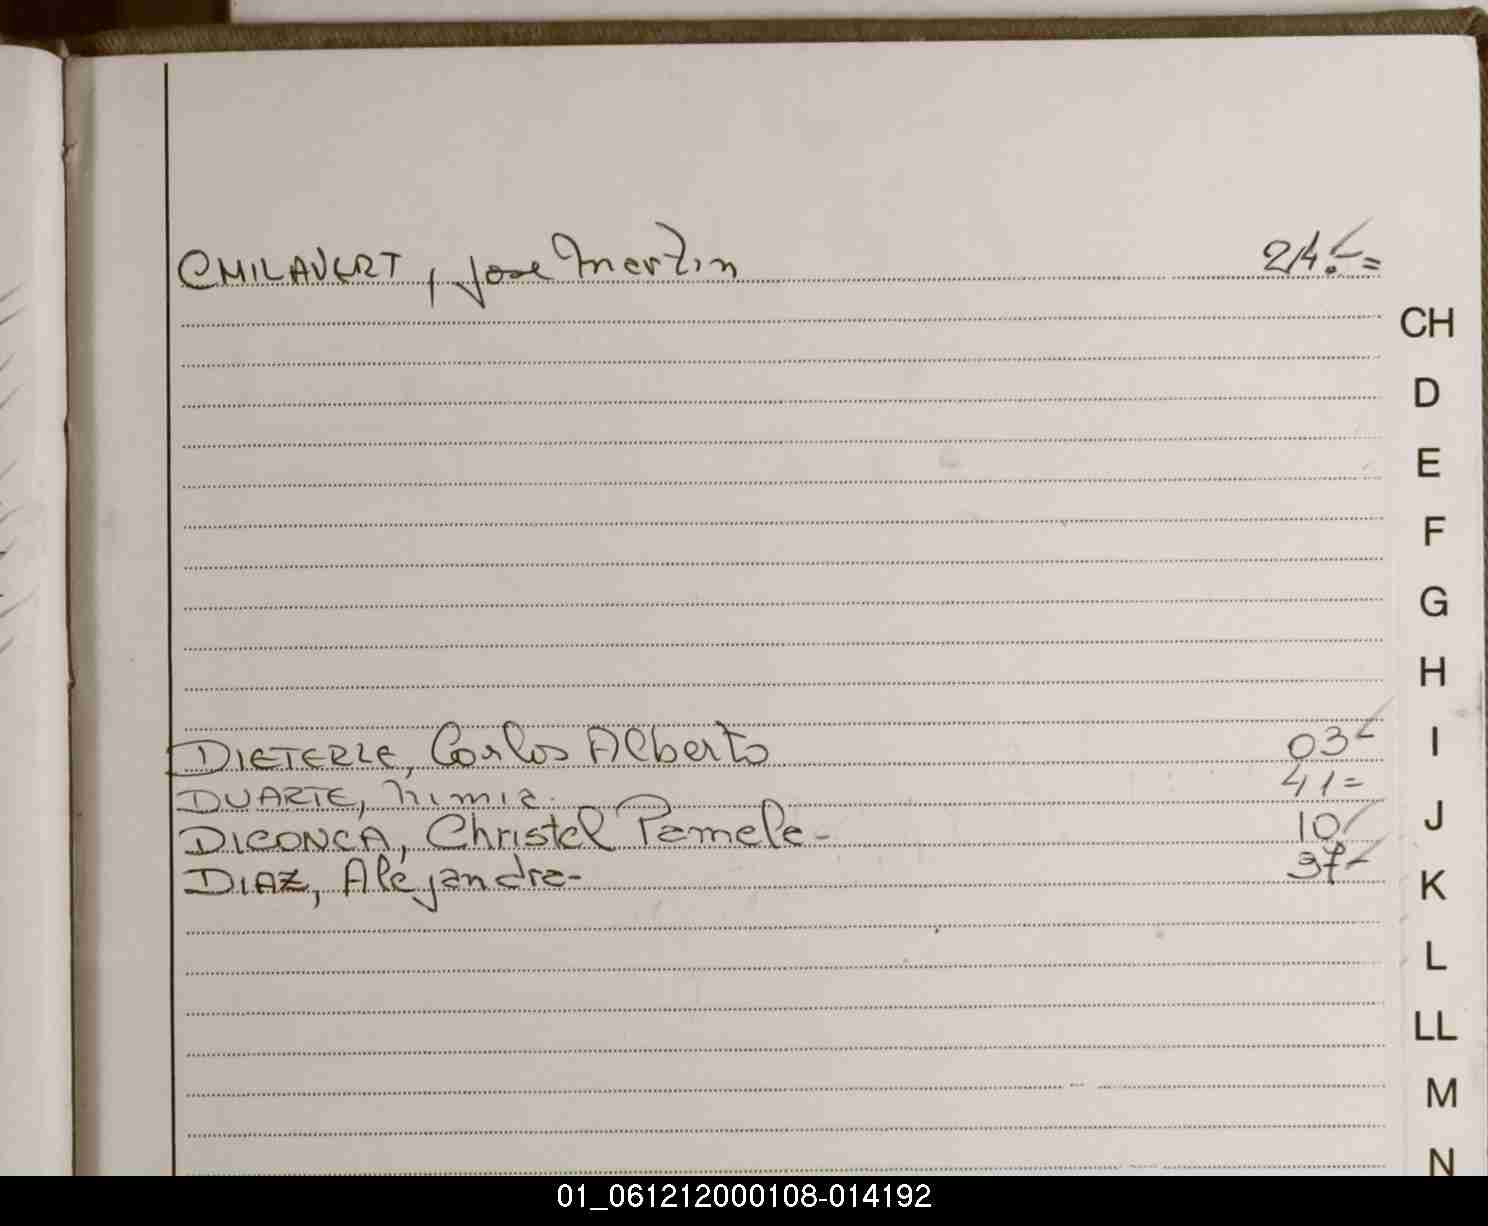 CHILAVERT, Jose Martin 24.=
CH
D
E
F
G
H
DIETERLE, Carlos Alberto 03
I
DUARTE, Nimia. 41=
DICONCA, Christel Pamela- 10
J
DIAZ, Alejandra- 37
K
L
LL
M
N
01_061212000108-014192